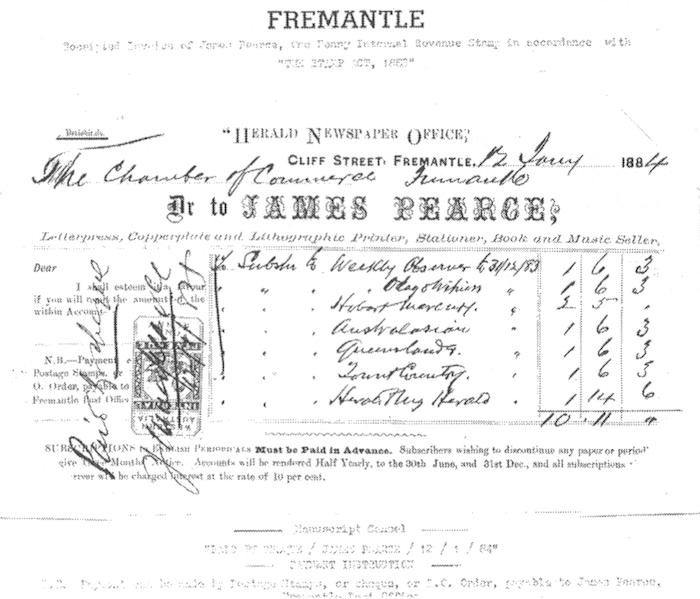 FREMANTLE
Receipted Invoice of James Pearce, One Penny Internal Revenue Stamp in accordance with
"THE STAMP ACT, 1882"
"HERALD NEWSPAPER OFFICE,"
CLIFF STREET, FREMANTLE, 12 Jany 1884
The Chamber of Commerce Fremantle
Dr to JAMES PEARCE,
Letterpress, Copperplate and Lithographic Printer, Stationer, Book and Music Seller,
Dear
I shall esteem it a favour
if you will remit the amount of the
within Account
N.B.—Payment
Postage Stamps, or
O. Order, payable to
Fremantle Post Office
To Subsn to Weekly Observer to 31/12/83 1 6 3
" " " Otago Witness " 1 6 3
" " Hobart Mercury " 2 5 "
" " Australasian 1 6 3
" " Queenslander " 1 6 3
" " Town & Country " 1 6 3
" " Herald " 1 14 6
10 11 "
SUBSCRIPTIONS to ENGLISH PERIODICALS Must be Paid in Advance. Subscribers wishing to discontinue any paper or period
give Three Months' Notice. Accounts will be rendered Half Yearly, to the 30th June, and 31st Dec., and all subscriptions
over will be charged interest at the rate of 10 per cent.
Manuscript Cancel
"PAID BY CHEQUE / JAMES PEARCE / 12 / 1 / 84"
PAYMENT INSTRUCTION
N.B. Payment can be made by Postage Stamps, or cheque, or P.O. Order, payable to James Pearce,
Fremantle Post Office